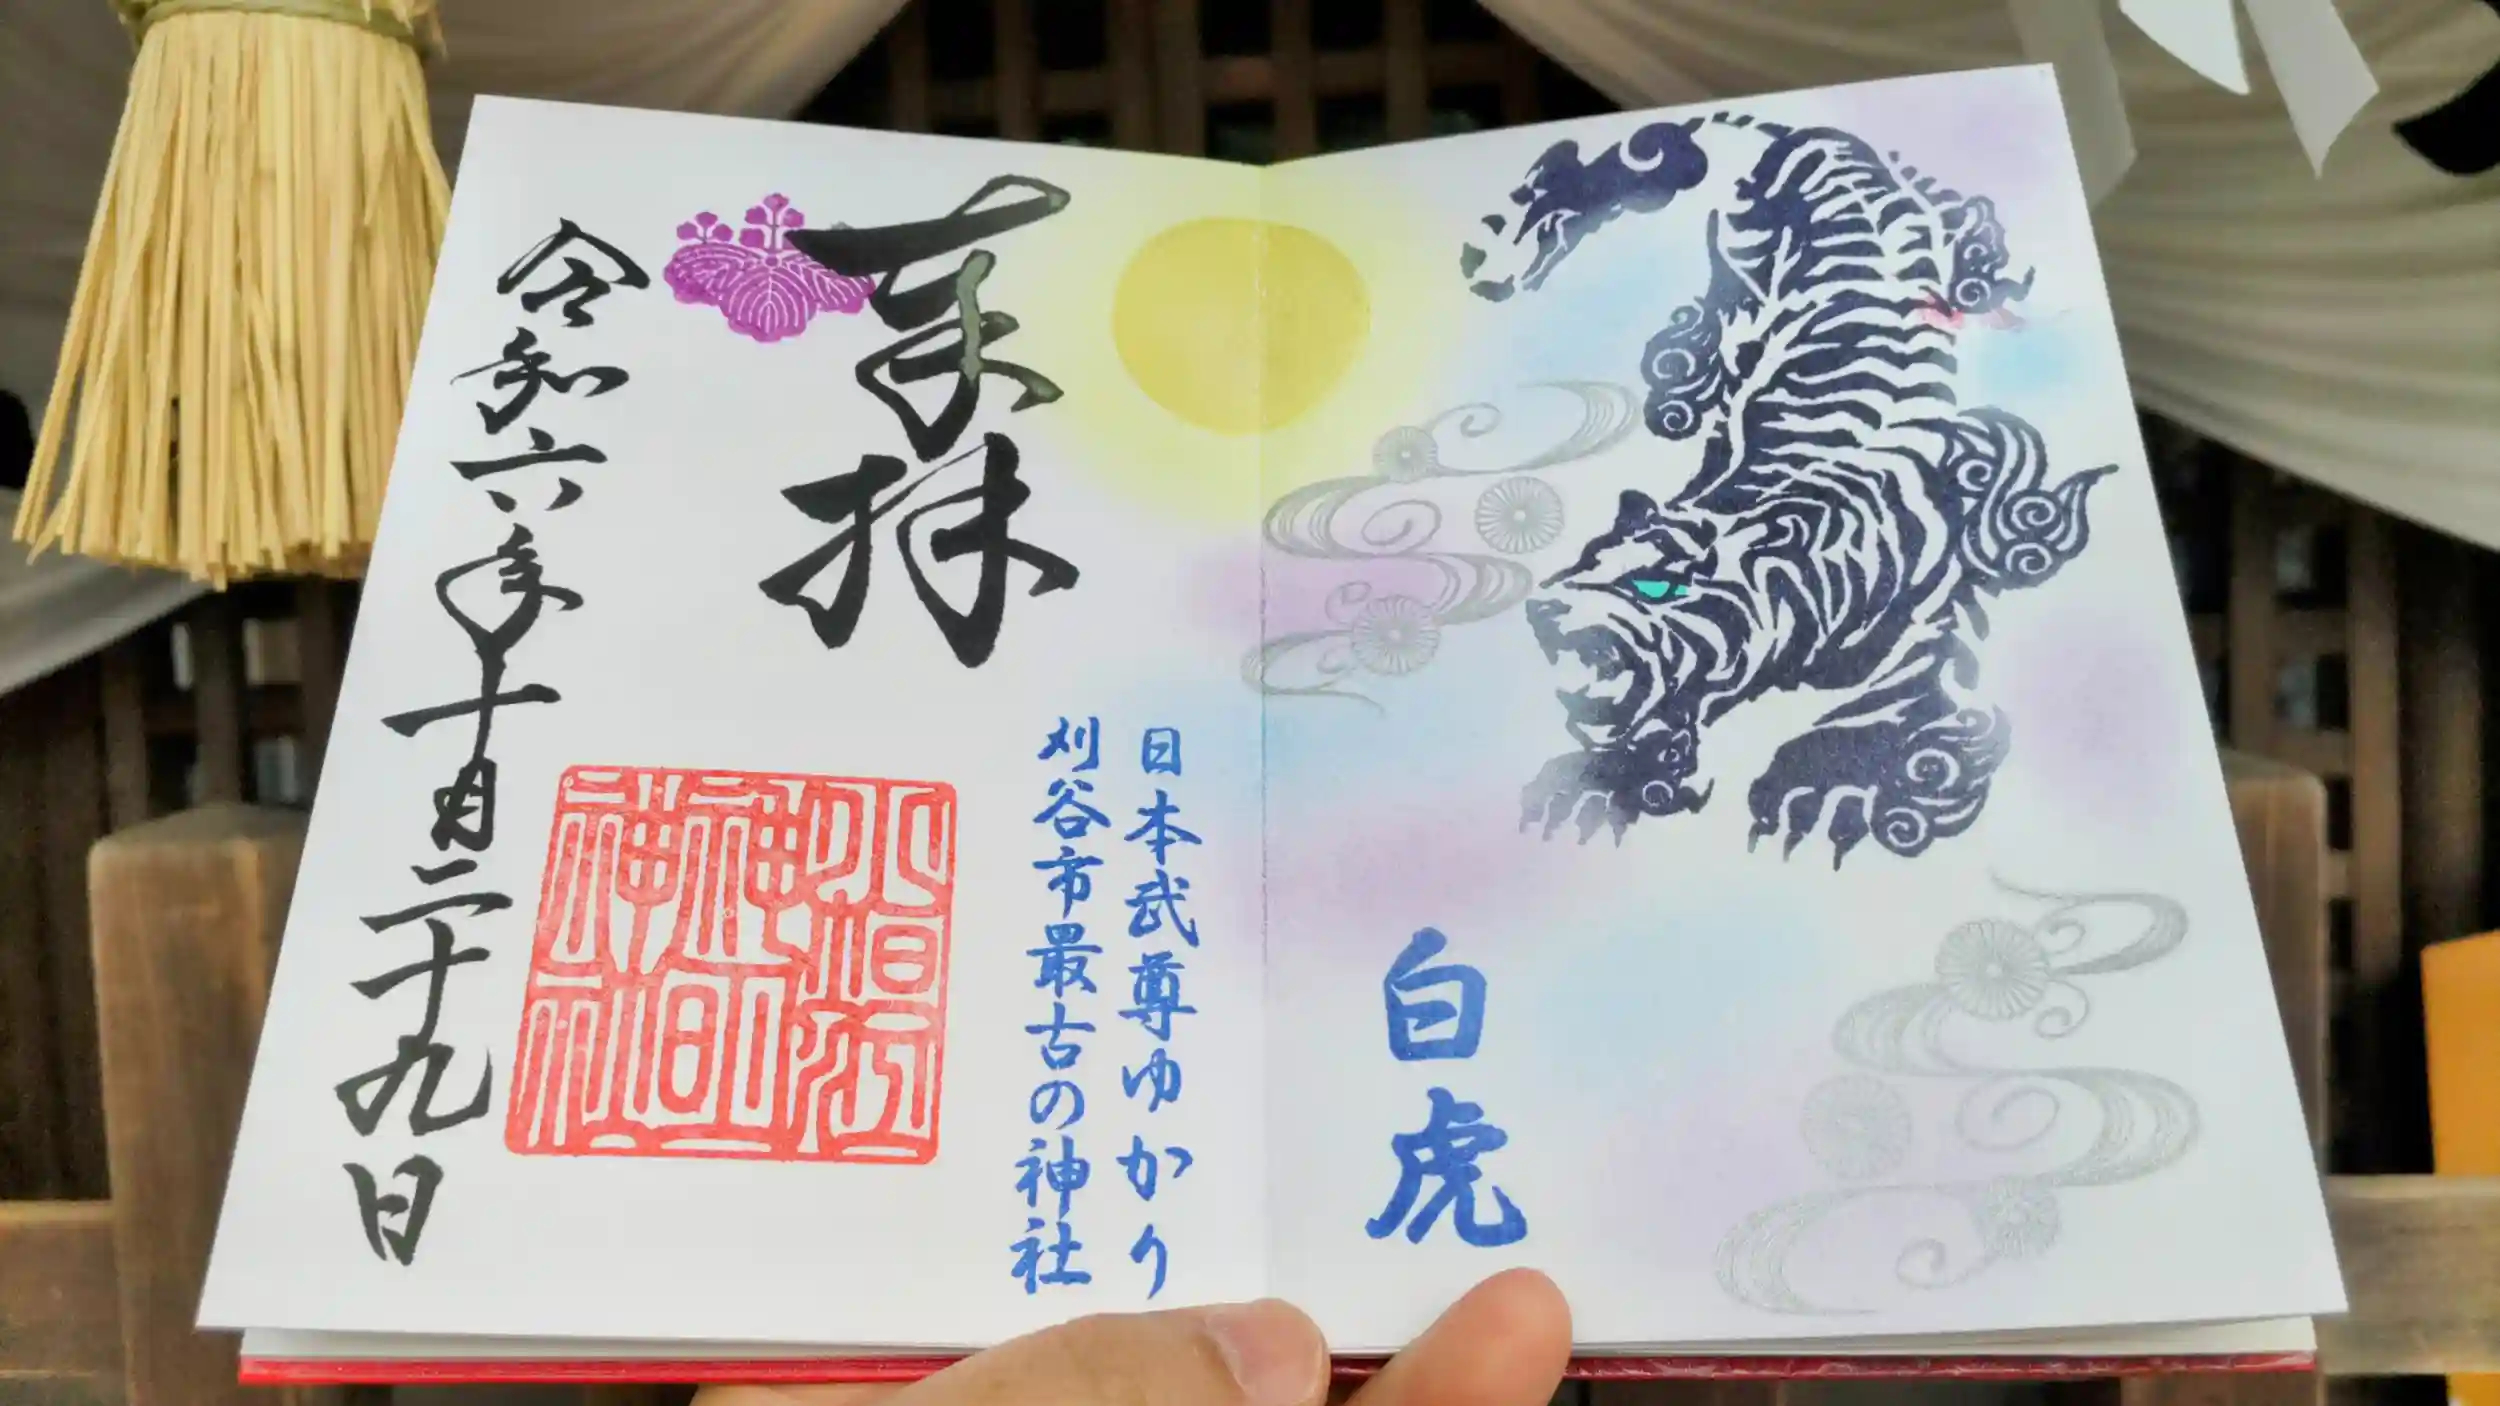 白虎
日本武尊ゆかり
刈谷市最古の神社
奉拝
小垣江
神明
神社
令和六年十月二十九日